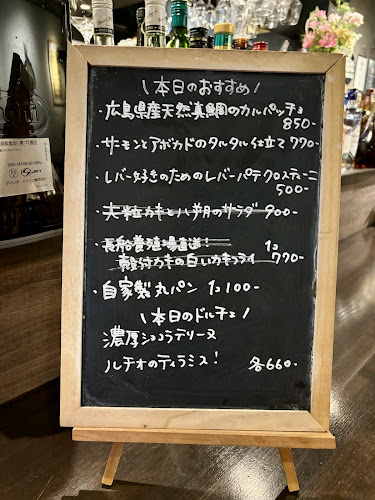 \ 本日のおすすめ /
・広島県産天然真鯛のカルパッチョ
850-
・サーモンとアボカドのタルタル仕立て 770-
・レバー好きのためのレバーパテクロスティーニ
500-
・大粒カキと八朔のサラダ 900-
・長船養殖場直送!
1コ
殻付カキの白いカキフライ 770-
・自家製丸パン 1コ100-
\ 本日のドルチェ /
濃厚ショコラテリーヌ
ルチオのティラミス! 各660-